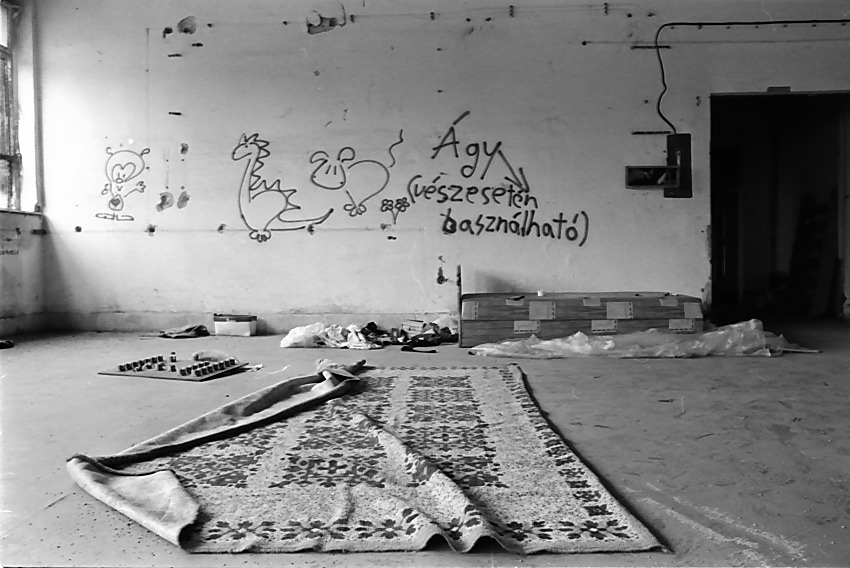 Ágy
(vészesetén
használható)